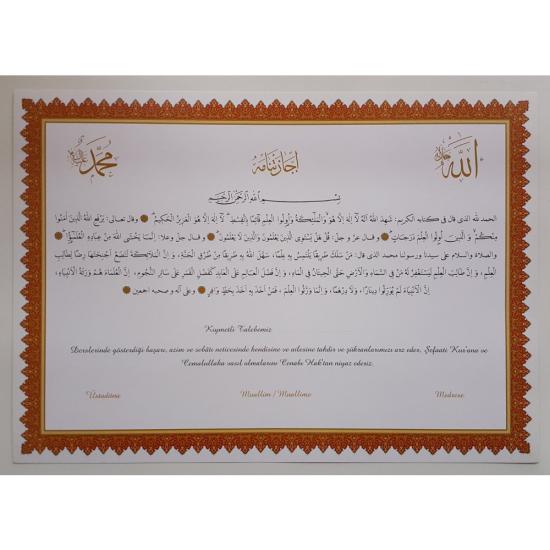 الله جل جلاله
اجازتنامه
محمد عليه السلام
بسم الله الرحمن الرحيم
الحمد لله الذى قال فى كتابه الكريم: شهد الله انه لا اله الا هو والملئكة واولوا العلم قائما بالقسط لا اله الا هو العزيز الحكيم وقال تعالى: يرفع الله الذين آمنوا
منكم والذين اوتوا العلم درجات وقال عز و جل: قل هل يستوى الذين يعلمون والذين لا يعلمون وقال جل وعلا: انما يخشى الله من عباده العلمؤا
والصلاة والسلام على سيدنا ورسولنا محمد الذى قال: من سلك طريقا يلتمس به علما، سهل الله به طريقا من طرق الجنة، و ان الملائكة لتضع اجنحتها رضا لطالب
العلم، و ان طالب العلم ليستغفر له من فى السماء والارض حتى الحيتان فى الماء، و ان فضل العالم على العابد كفضل القمر على سائر النجوم، ان العلماء هم ورثة الانبياء،
ان الانبياء لم يورثوا دينارا، ولا درهما، و انما ورثوا العلم، فمن اخذ به اخذ بحظ وافر وعلى آله و صحبه اجمعين
Kıymetli Talebemiz
Derslerinde gösterdiği başarı, azim ve sebâtı neticesinde kendisine ve ailesine takdir ve şükranlarımızı arz eder, Şefaati Kur'ana ve
Cemalullaha nasıl olmalarını Cenabı Hak'tan niyaz ederiz.
Üstadâne Muallim / Muallime Medrese